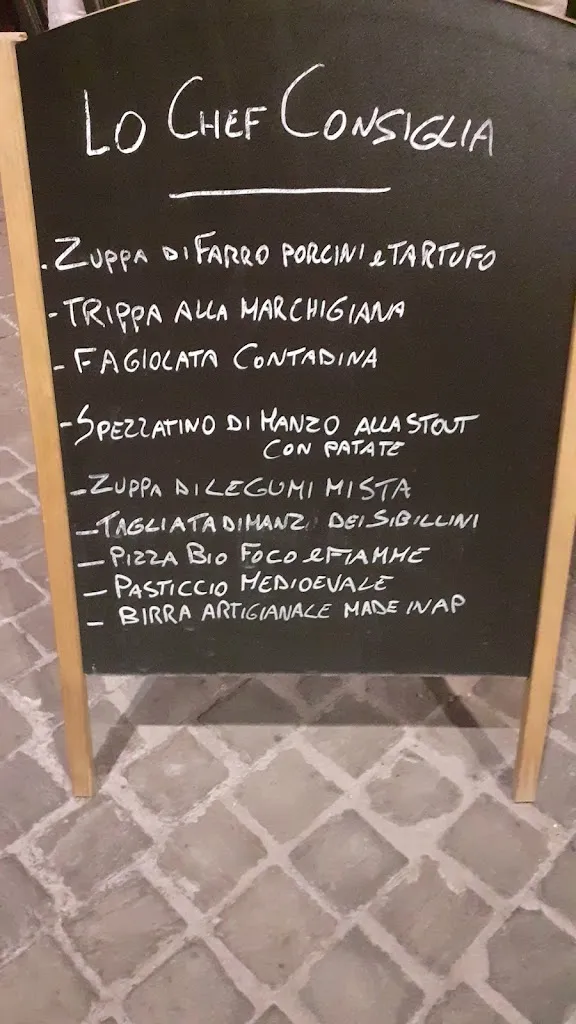 LO CHEF CONSIGLIA
. ZUPPA DI FARRO PORCINI e TARTUFO
- TRIPPA ALLA MARCHIGIANA
- FAGIOLATA CONTADINA
- SPEZZATINO DI MANZO ALLA STOUT
CON PATATE
- ZUPPA DI LEGUMI MISTA
- TAGLIATA DI MANZ DEI SIBILLINI
- PIZZA BIO FOCO e FIAMME
- PASTICCIO MEDIOEVALE
- BIRRA ARTIGIANALE MADE IN AP